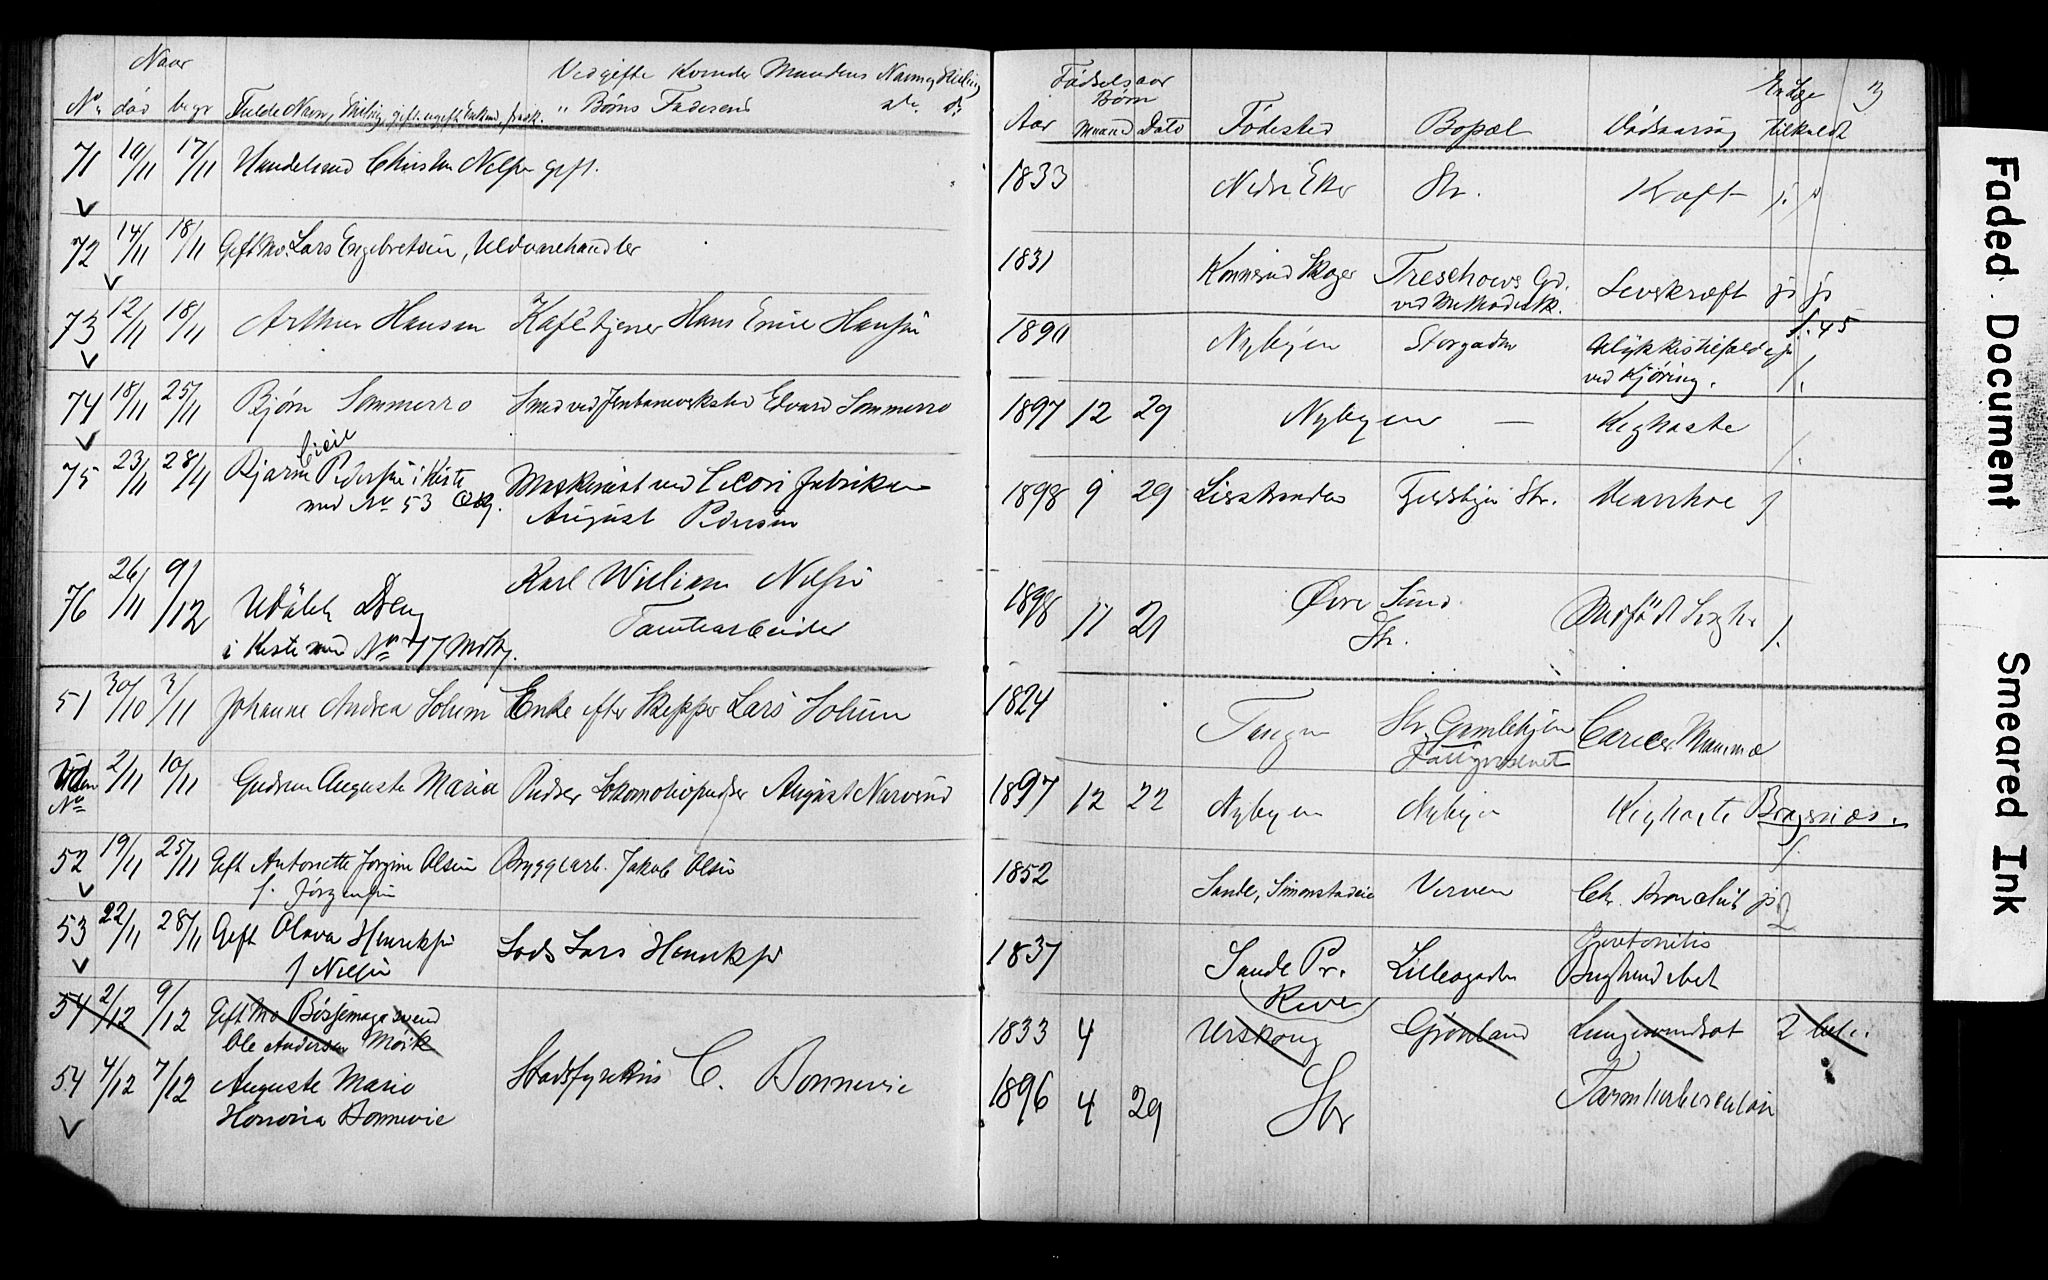 Naar
No død begr Fulde Navn, Stilling, gift, ugift Enkem, frask. Vedgifte Kvinder Mandens Navn og Stilling
" Børns Faderens do
Fødselsaar
Børn
Aar Maaned Dato Fødested Bopæl Dødsaarsag tilkaldt 3
71 10/11 17/11 Handelsmd Christen Nilsen gift. 1833 Nedre Eker Str. Kræft j. j.
72 14/11 18/11 Gift Md. Lars Engebretsen, Uldvarehandler 1831 Konnerud Skoger Treschows Gd. Leverkræft ja ja
ved Methodistk.
73 12/11 18/11 Arthur Hansen Kafétjener Hans Emil Hansen 1890 Nybyen Storgaden Ulykkestilfælde ja 1.45
ved Kjøring. /.
74 18/11 25/11 Bjørn Sommerro Smed ved Jernbaneverksted Edvard Sommerro 1897 12 29 Nybyen — Kighoste /.
75 23/11 28/11 Bjarne Pedersen i Kiste Maskinist ved Cicori fabriken 1898 9 29
med No 53 August Pedersen
76 26/11 9/12 Udøbt Dreng Karl William Nilsen 1898 11 21 Øvre Sund Medfødt /.
i Kiste med No 77 Tomtearbeider Str.
51 30/10 3/11 Johanne Andrea Solum Enke efter Skipper Lars Solum 1824 Tangen Str. Gamlebyen Cancer Mammæ
Fattigvæsenet
Uden No 2/11 10/11 Gudrun Auguste Maria Pudser Lokomotivpudser August Narverud 1897 12 22 Nybyen Nybyen Kighoste Bragernæs.
/.
52 19/11 25/11 Gift Antonette Jørgine Olsen Bryggearb. Jakob Olsen 1852 Sande, Verven Chr. Bronchit ja 2
f. Jørgensen
53 22/11 28/11 Gift Olava Henriksen Lods Lars Henriksen 1837 Sande Pr. Lilleogaden
f Nilsen
54 2/12 9/12 Gift Md Bøssemagersvend 1833 4 Urskoug Grønland Lungesvindsot
Ole Andersen Mørk
54 4/12 7/12 Auguste Marie Stadsfysikus C. Bonnevie 1896 4 29 Str Tarmtuberculose
Honoria Bonnevie
Faded Document
Smeared Ink